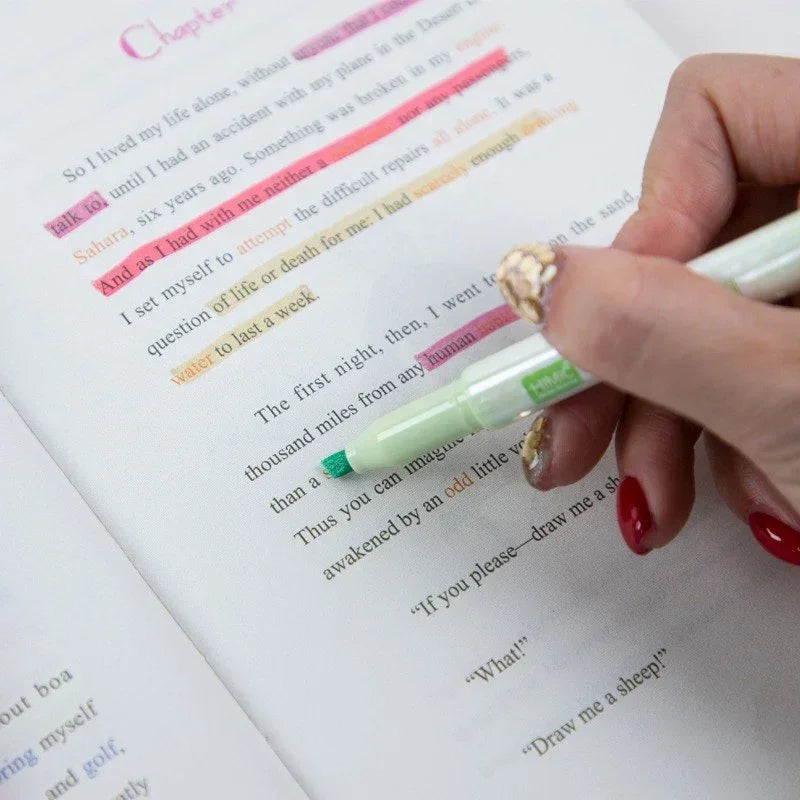 Chapter
So I lived my life alone, without anyone that I could
talk to, until I had an accident with my plane in the Desert
Sahara, six years ago. Something was broken in my engine.
And as I had with me neither a nor any passengers,
I set myself to attempt the difficult repairs all alone. It was a
question of life or death for me: I had scarcely enough drinking
water to last a week.
The first night, then, I went to on the sand,
thousand miles from any human
than a
Thus you can imagine
awakened by an odd little
"If you please—draw me a
"What!"
"Draw me a sheep!"
out boa
myself
and golf,
HIMIC